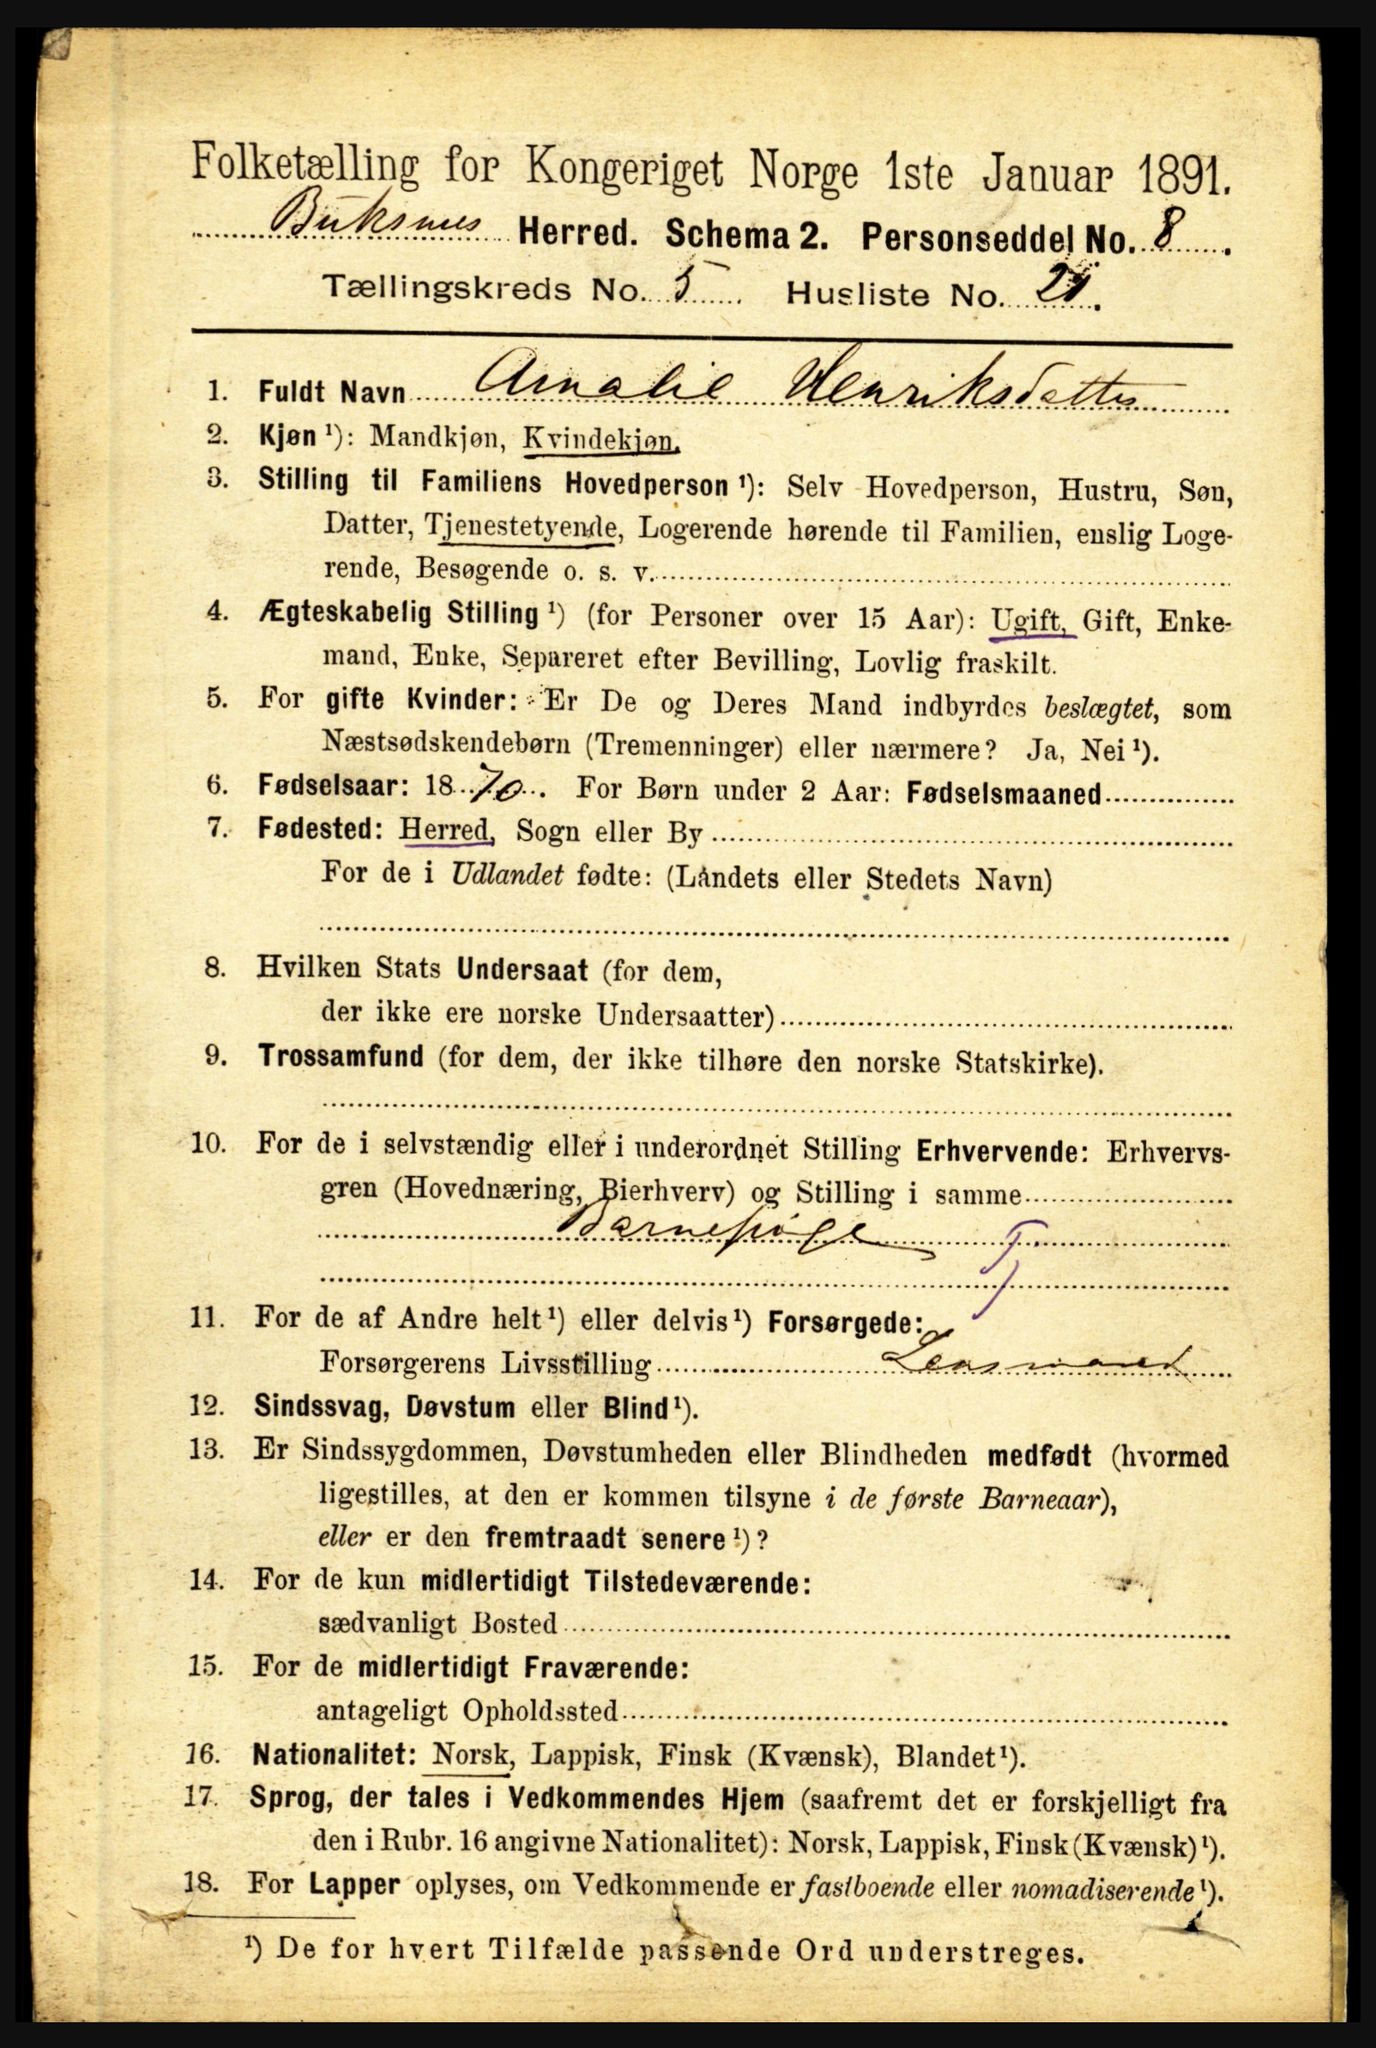 Folketælling for Kongeriget Norge 1ste Januar 1891.
Buksnes Herred. Schema 2. Personseddel No. 8
Tællingskreds No. 5 Husliste No.
1. Fuldt Navn Amalie Henriksdatter
2. Kjøn ¹): Mandkjøn, Kvindekjøn.
3. Stilling til Familiens Hovedperson ¹): Selv Hovedperson, Hustru, Søn,
Datter, Tjenestetyende, Logerende hørende til Familien, enslig Loge-
rende, Besøgende o. s. v.
4. Ægteskabelig Stilling ¹) (for Personer over 15 Aar): Ugift, Gift, Enke-
mand, Enke, Separeret efter Bevilling, Lovlig fraskilt.
5. For gifte Kvinder: Er De og Deres Mand indbyrdes beslægtet, som
Næstsødskendebørn (Tremenninger) eller nærmere? Ja, Nei ¹).
6. Fødselsaar: 1870. For Børn under 2 Aar: Fødselsmaaned
7. Fødested: Herred, Sogn eller By
For de i Udlandet fødte: (Landets eller Stedets Navn)
8. Hvilken Stats Undersaat (for dem,
der ikke ere norske Undersaatter)
9. Trossamfund (for dem, der ikke tilhøre den norske Statskirke).
10. For de i selvstændig eller i underordnet Stilling Erhvervende: Erhvervs-
gren (Hovednæring, Bierhverv) og Stilling i samme
Barnepige Tj
11. For de af Andre helt ¹) eller delvis ¹) Forsørgede:
Forsørgerens Livsstilling Lensmand
12. Sindssvag, Døvstum eller Blind ¹).
13. Er Sindssygdommen, Døvstumheden eller Blindheden medfødt (hvormed
ligestilles, at den er kommen tilsyne i de første Barneaar),
eller er den fremtraadt senere ¹)?
14. For de kun midlertidigt Tilstedeværende:
sædvanligt Bosted
15. For de midlertidigt Fraværende:
antageligt Opholdssted
16. Nationalitet: Norsk, Lappisk, Finsk (Kvænsk), Blandet ¹).
17. Sprog, der tales i Vedkommendes Hjem (saafremt det er forskjelligt fra
den i Rubr. 16 angivne Nationalitet): Norsk, Lappisk, Finsk (Kvænsk) ¹).
18. For Lapper oplyses, om Vedkommende er fastboende eller nomadiserende ¹).
¹) De for hvert Tilfælde passende Ord understreges.